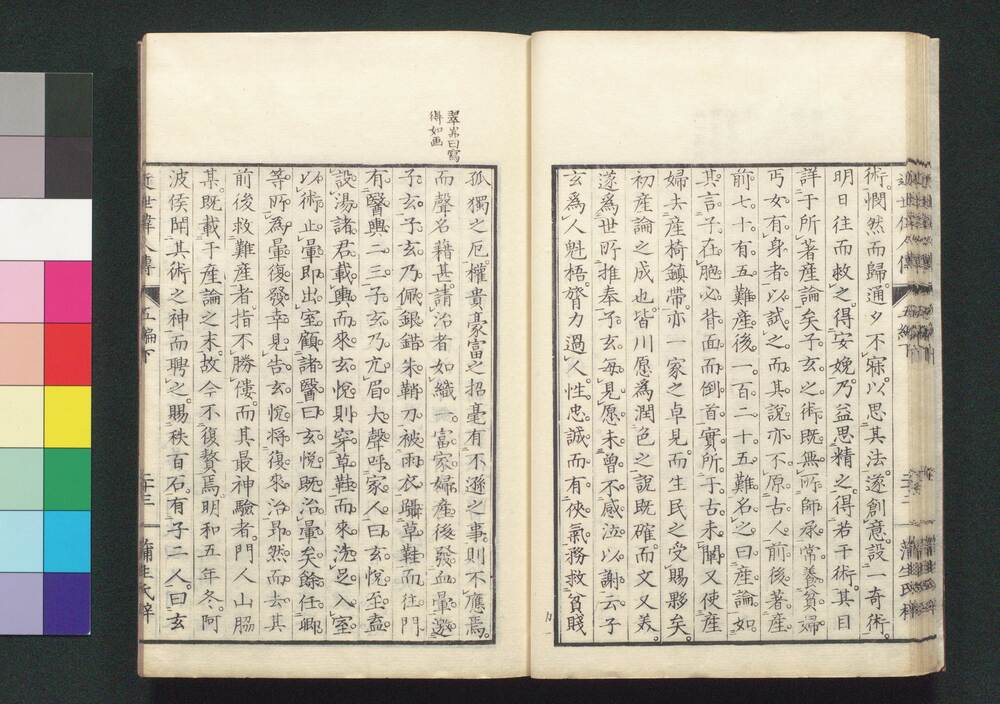 術。憫然而歸。通夕不寐。以思其法。遂創意。設一奇術。
明日往而救之。得安娩。乃益思精之。得若干術。其目
詳于所著産論矣。子玄之術。既無所師承。常養貧婦
丐女有身者。以試之。而其說亦不原古人。前後著産
前七十有五難。産後一百二十五難。名之曰産論。如
其言子在胞。必背面而倒首。實所于古未聞。又使産
婦去産椅鎮帶。亦一家之卓見。而生民之受賜夥矣。
初産論之成也。皆川愿爲潤色之。說既確而文又美。
遂爲世所推奉。子玄每見愿。未曾不感泣以謝云。子
玄爲人魁梧。膂力過人。性忠誠。而有俠氣。務救貧賤
孤獨之厄。權貴豪富之招。毫有不遜之事。則不應焉。
而聲名藉甚。請治者如織。一富家婦。産後發血暈。邀
子玄。子玄乃佩銀錯朱鞘刀。被雨衣。躡草鞋而往。門
有醫輿二三。子玄乃亢眉大聲。呼家人曰。玄悅至。盍
設湯。諸君載輿而來。玄悅則穿草鞋而來。洗足入室。
以術止暈。即出室。顧諸醫曰。玄悅既治暈矣。餘任卿
等所爲。暈復發。幸見告。玄悅將復來治。昂然而去。其
前後救難産者。指不勝僂。而其最神驗者。門人山脇
某。既載于産論之末。故今不復贅焉。明和五年冬。阿
波侯聞其術之神而聘之。賜秩百石。有子二人。曰玄
翠嵓曰寫
得如画
近世偉人傳
五編下
二十三
蒲生氏梓